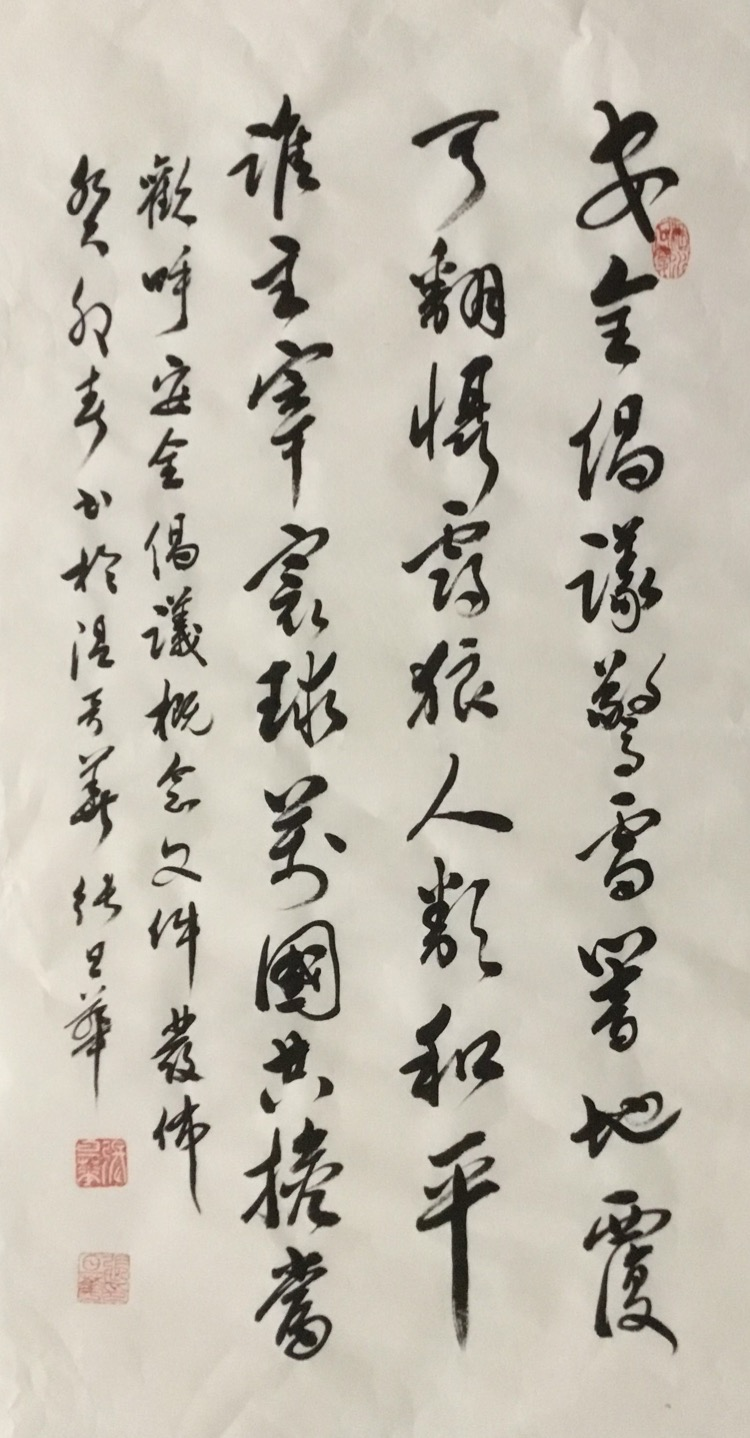 安全倡議驚雷響地覆
天翻懾霸狼人類和平
誰主宰寰球萬國共擔當
歡呼安全倡議概念文件發佈
癸卯春書於温哥華張日華